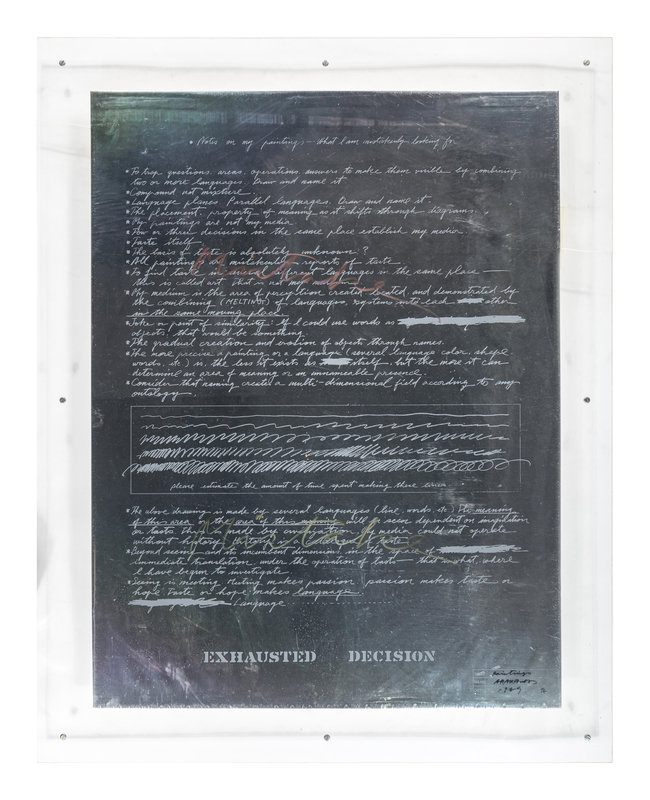 • Notes on my paintings — What I am mistakenly looking for
• To trap questions, areas, operations, answers to make them visible by combining
two or more languages. Draw and name it.
• Compound not mixture.
• Language planes. Parallel languages. Draw and name it.
• The placement, property of meaning as it shifts through diagrams.
• My paintings are not my media.
• Two or three decisions in the same place establish my media.
• Taste itself
• The basis of taste is absolutely unknown?
• All paintings as mistakenly reports of taste
• To find taste in different languages in the same place —
this is called art. That is not my
• My medium is the area of perception created, located, and demonstrated by
the combining (MELTING?) of languages, systems into each other
in the same moving place.
• Joke or point of similarity: If I could use words as
objects, that would be something.
• The gradual creation and evolution of objects through names.
• The more precise a painting, or a language (several languages color, shape
words, etc.) is, the less it exists as itself but the more it can
determine an area of meaning or an unnameable presence.
• Consider that naming creates a multi-dimensional field according to my
ontology.
please estimate the amount of time spent making these lines
• The above drawing is made by several languages (line, words, etc.) The meaning
of this area or the area of this meaning will be seen dependent on imagination
or taste
without history
• Beyond seeing and its incumbent dimensions, in the space of
immediate translation, under the operation of taste — that is what, where
I have begun to investigate.
• Seeing is meeting. Meeting makes passion passion makes taste or
hope. Taste or hope makes language.
Language
Mistake
Mistake
EXHAUSTED DECISION
paintings
ARAKAWA
1969